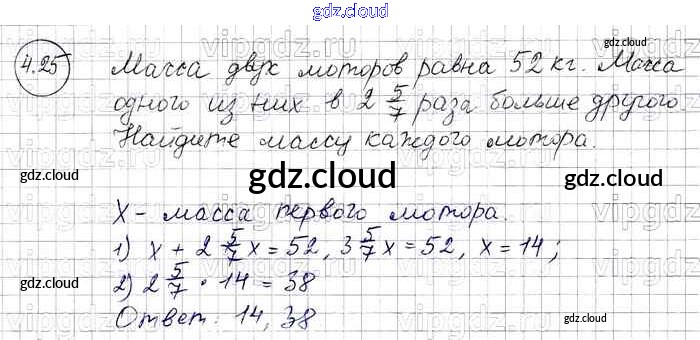 gdz.cloud
4.25
Масса двух моторов равна 52 кг. Масса
одного из них в 2 5/7 раза больше другого.
Найдите массу каждого мотора.
gdz.cloud
gdz.cloud
gdz.cloud
X - масса первого мотора.
1) x + 2 5/7 x = 52, 3 5/7 x = 52, x = 14;
gdz.cloud
gdz.cloud
2) 2 5/7 · 14 = 38
Ответ: 14, 38
gdz.cloud
gdz.cloud